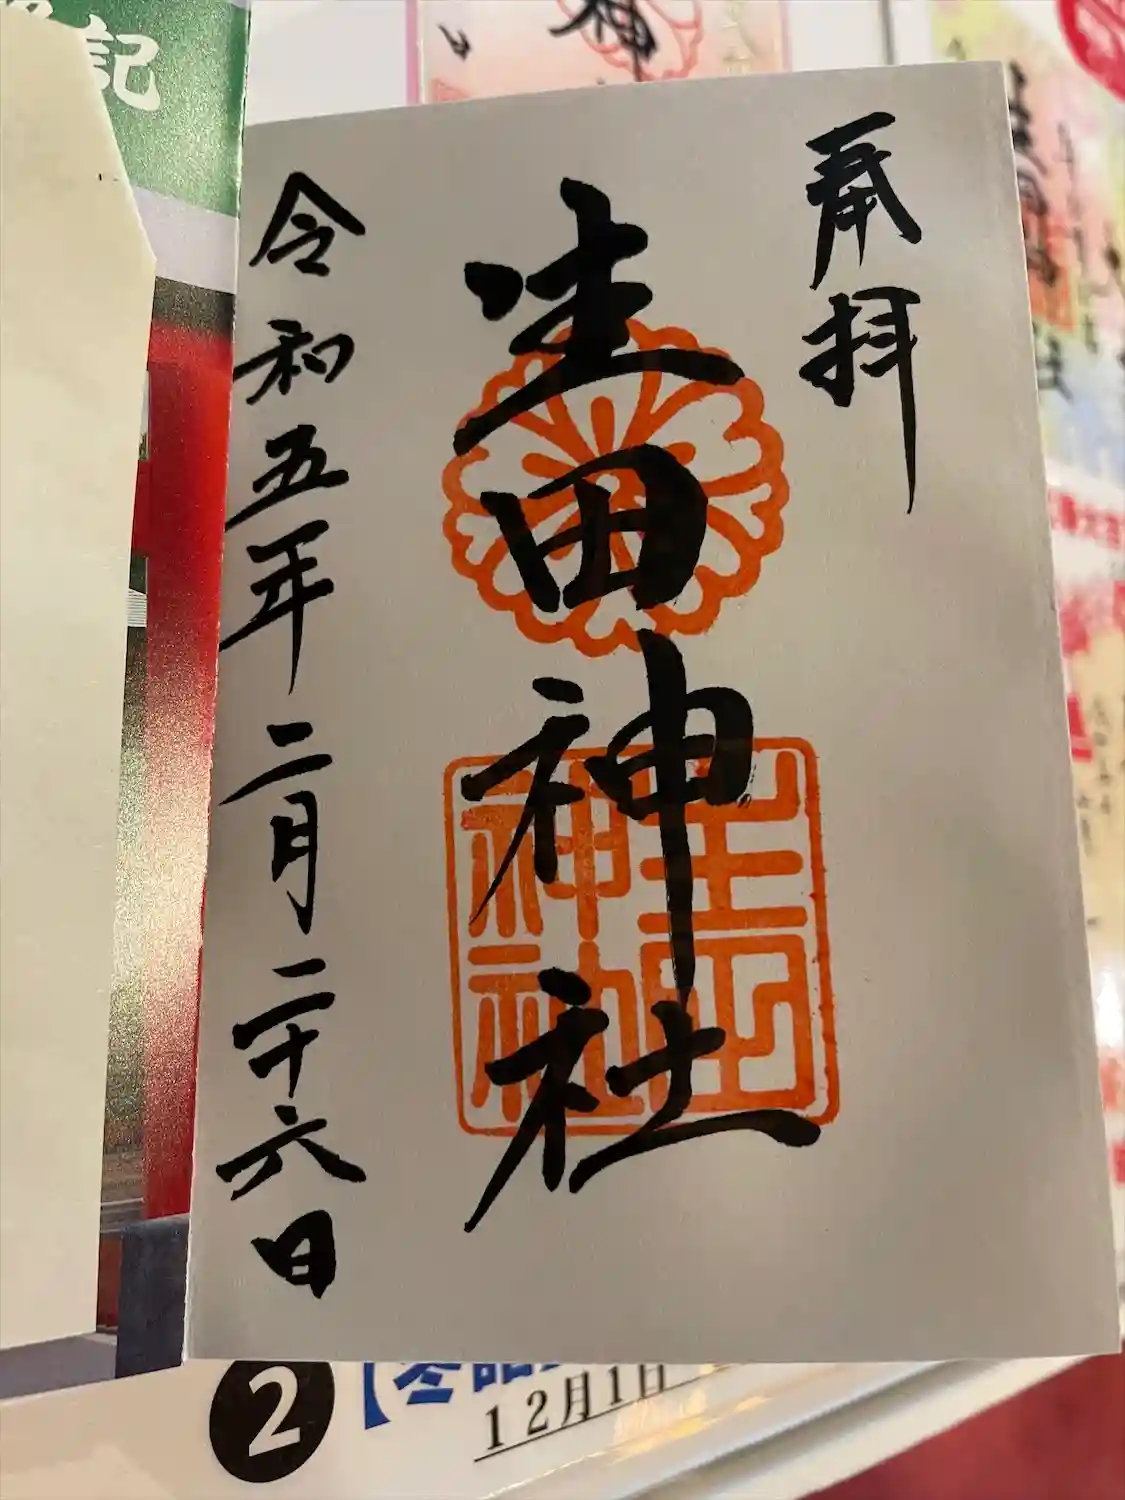 奉拝
生田神社
生田
神社
令和五年二月二十六日
記
神
い
2
【冬
12月1日